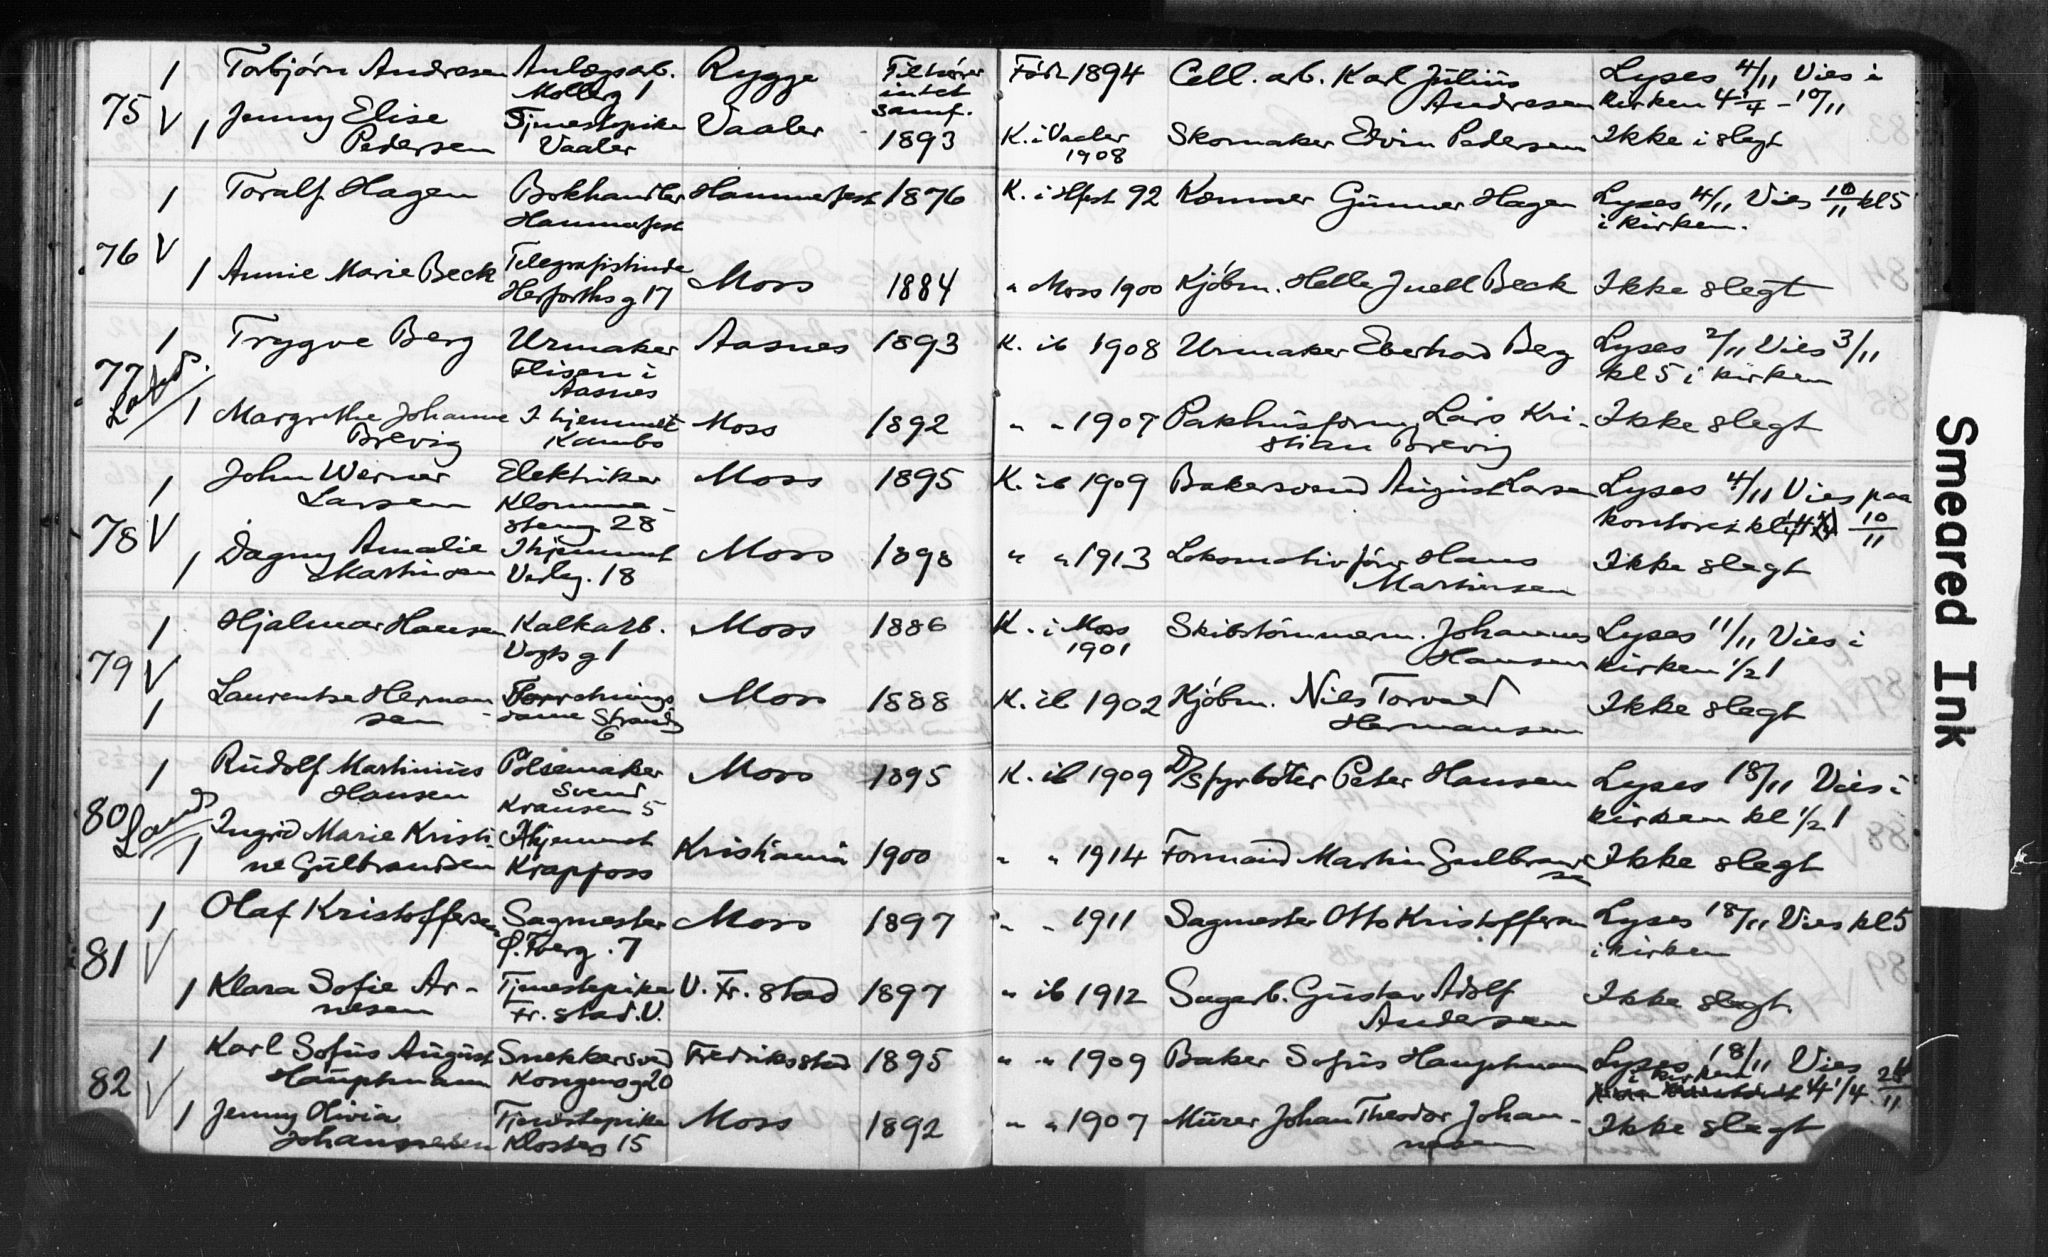 75 V
1 Torbjørn Andresen Anlægsarb. Rygge Tilhører Født 1894 Cell. arb. Karl Julius Lyses 4/11 Vies i
Mollerg 1 intet Andresen kirken 4 1/4 - 10/11
samf.
1 Jenny Elise Tjenestepike Vaaler 1893 K. i Vaaler Skomaker Edvin Pedersen Ikke i slegt
Pedersen Vaaler 1908
76 V
1 Toralf Hagen Bokhandler Hammerfest 1876 K. i Hfest 92 Kæmner Gunnar Hagen Lyses 4/11 Vies 10/11 kl 5
Hammerfest i kirken.
1 Annie Marie Beck Telegrafistinde Moss 1884 " Moss 1900 Kjøbm. Helle Juell Beck Ikke slegt
Herforths g 17
77 Lavd.
1 Trygve Berg Urmaker Aasnes 1893 K. ib 1908 Urmaker Eberhad Berg Lyses 2/11 Vies 3/11
Flisen i kl 5 i kirken
Aasnes
1 Margrethe Johanne I hjemmet Moss 1892 " " 1907 Pakhusform. Lars Kri- Ikke slegt
Brevig Kambo stian Brevig
78 V
1 John Werner Elektriker Moss 1895 K. ib 1909 Bakersvend August Larsen Lyses 4/11 Vies paa
Larsen 28 kontoret kl 10/11
1 Dagny Amalie I hjemmet Moss 1898 " " 1913 Lokomotivfører Hans Ikke slegt
Martinsen Verleg. 18 Martinsen
79 V
1 Hjalmar Hansen Kalkarb. Moss 1886 K. i Moss Skibstømmerm. Johannes Lyses 11/11 Vies i
Vogts g 1 1901 Hansen kirken 1/2 1
1 Laurentse Herman Forretnings Moss 1888 K. ib 1902 Kjøbm. Nils Torvald Ikke slegt
sen dame Strandg 6 Hermansen
80 Lavd
1 Rudolf Martinius Pølsemaker Moss 1895 K. ib 1909 D/S fyrbøter Peter Hansen Lyses 18/11 Vies i
Hansen svend kirken kl 1/2 1
Kransen 5
1 Ingrid Marie Kristi I hjemmet Kristiania 1900 " " 1914 Formand Martin Gulbrand Ikke slegt
ne Gulbrandsen Krapfoss sen
81 V
1 Olaf Kristoffersen Sagmester Moss 1897 " " 1911 Sagmester Otto Kristoffersen Lyses 18/11 Vies kl 5
7 i kirken
1 Klara Sofie Ar- Tjenestepike V. Fr. stad 1897 " ib 1912 Sagarb. Gustav Adolf Ikke slegt.
nesen Fr. stad. V. Andersen
82 V
1 Karl Sofus August Snekkersvend Fredriksstad 1895 " " 1909 Baker Sofus Hauptmann Lyses 18/11 Vies
Hauptmann Kongensg 20 i kirken 4 1/4 24/11
1 Jenny Olivia Tjenestepike Moss 1892 " " 1907 Murer Johan Theodor Johan- Ikke slegt
Johannesen Klosterg 15 nesen
Smeared Ink